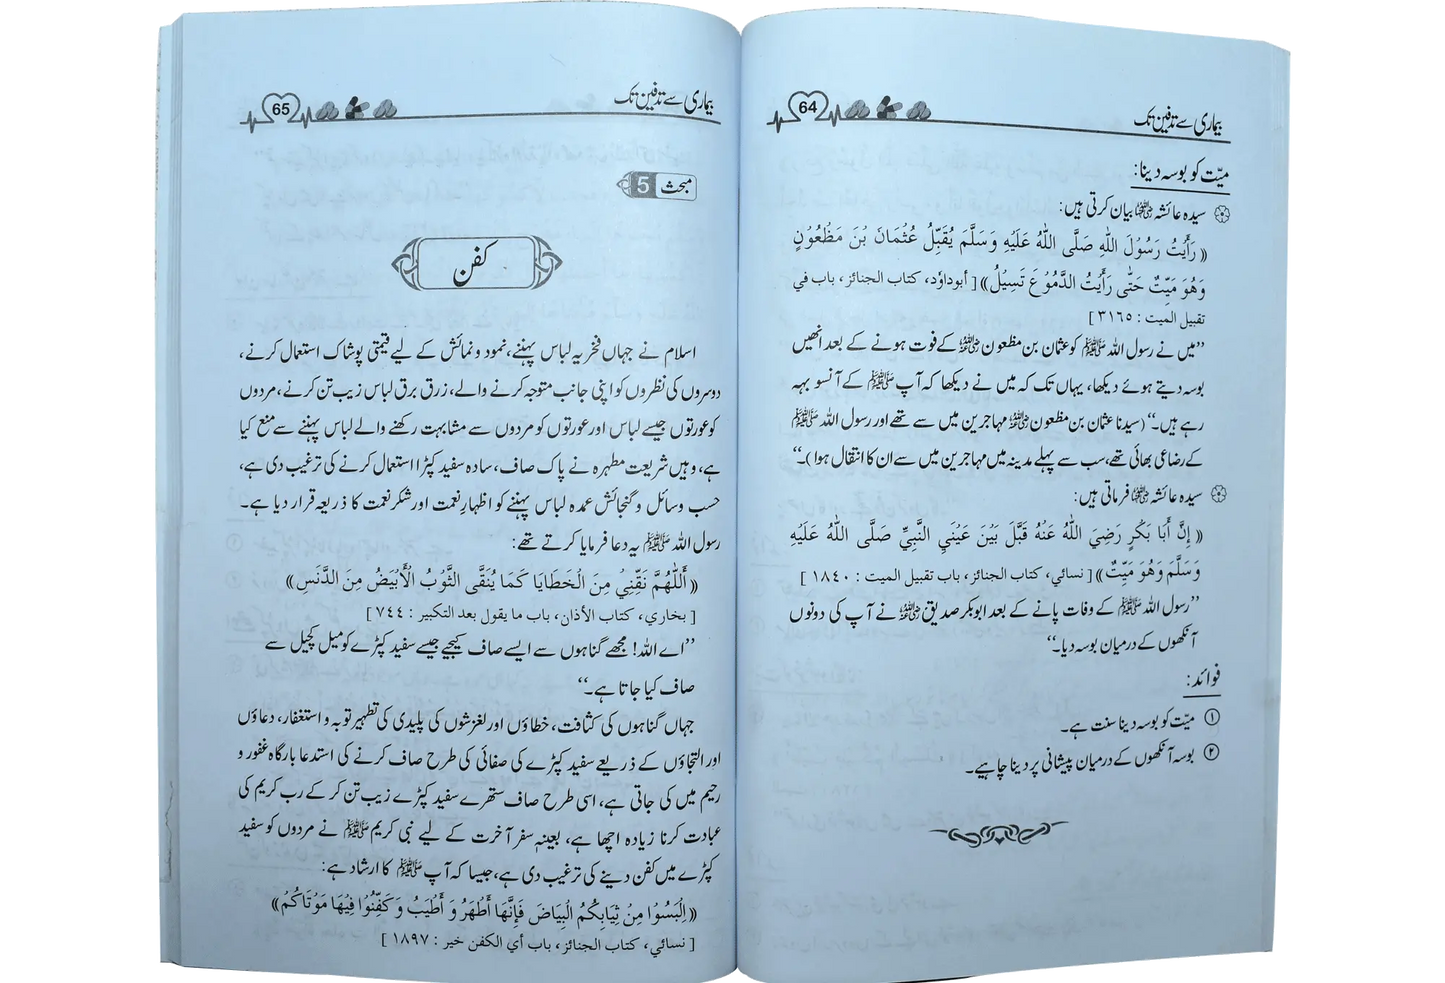 بیماری سے تدفین تک
64
میّت کو بوسہ دینا:
سیدہ عائشہ رضی اللہ عنہا بیان کرتی ہیں:
((رَأَيْتُ رَسُوْلَ اللّٰهِ صَلَّى اللّٰهُ عَلَيْهِ وَسَلَّمَ يُقَبِّلُ عُثْمَانَ بْنَ مَظْعُوْنٍ
وَهُوَ مَيِّتٌ حَتّٰى رَأَيْتُ الدُّمُوْعَ تَسِيْلُ)) [ أبوداؤد، کتاب الجنائز، باب في
تقبيل الميت : ٣١٦٥ ]
’’میں نے رسول اللہ ﷺ کو عثمان بن مظعون رضی اللہ عنہ کے فوت ہونے کے بعد انھیں
بوسہ دیتے ہوئے دیکھا، یہاں تک کہ میں نے دیکھا کہ آپ ﷺ کے آنسو بہہ
رہے ہیں۔‘‘ (سیدنا عثمان بن مظعون رضی اللہ عنہ مہاجرین میں سے تھے اور رسول اللہ ﷺ
کے رضاعی بھائی تھے، سب سے پہلے مدینہ میں مہاجرین میں سے ان کا انتقال ہوا)۔‘‘
سیدہ عائشہ رضی اللہ عنہا فرماتی ہیں:
((إِنَّ أَبَا بَكْرٍ رَضِيَ اللّٰهُ عَنْهُ قَبَّلَ بَيْنَ عَيْنَيِ النَّبِيِّ صَلَّى اللّٰهُ عَلَيْهِ
وَسَلَّمَ وَهُوَ مَيِّتٌ)) [ نسائي، کتاب الجنائز، باب تقبيل الميت : ١٨٤٠ ]
’’رسول اللہ ﷺ کے وفات پانے کے بعد ابوبکر صدیق رضی اللہ عنہ نے آپ کی دونوں
آنکھوں کے درمیان بوسہ دیا۔‘‘
فوائد:
① میّت کو بوسہ دینا سنت ہے۔
② بوسہ آنکھوں کے درمیان پیشانی پر دینا چاہیے۔
بیماری سے تدفین تک
65
مبحث 5
کفن
اسلام نے جہاں فخریہ لباس پہننے، نمود و نمائش کے لیے قیمتی پوشاک استعمال کرنے،
دوسروں کی نظروں کو اپنی جانب متوجہ کرنے والے، زرق برق لباس زیب تن کرنے، مردوں
کو عورتوں جیسے لباس اور عورتوں کو مردوں سے مشابہت رکھنے والے لباس پہننے سے منع کیا
ہے، وہیں شریعت مطہرہ نے پاک صاف، سادہ سفید کپڑا استعمال کرنے کی ترغیب دی ہے،
حسب وسائل و گنجائش عمدہ لباس پہننے کو اظہارِ نعمت اور شکر نعمت کا ذریعہ قرار دیا ہے۔
رسول اللہ ﷺ یہ دعا فرمایا کرتے تھے:
((أَللّٰهُمَّ نَقِّنِيْ مِنَ الْخَطَايَا كَمَا يُنَقَّى الثَّوْبُ الْأَبْيَضُ مِنَ الدَّنَسِ))
[ بخاري، کتاب الأذان، باب ما يقول بعد التكبير : ٧٤٤ ]
’’اے اللہ! مجھے گناہوں سے ایسے صاف کیجیے جیسے سفید کپڑے کو میل کچیل سے
صاف کیا جاتا ہے۔‘‘
جہاں گناہوں کی کثافت، خطاؤں اور لغزشوں کی پلیدی کی تطہیر توبہ و استغفار، دعاؤں
اور التجاؤں کے ذریعے سفید کپڑے کی صفائی کی طرح صاف کرنے کی استدعا بارگاہ غفور و
رحیم میں کی جاتی ہے، اسی طرح صاف ستھرے سفید کپڑے زیب تن کر کے رب کریم کی
عبادت کرنا زیادہ اچھا ہے، بعینہٖ سفر آخرت کے لیے نبی کریم ﷺ نے مردوں کو سفید
کپڑے میں کفن دینے کی ترغیب دی ہے، جیسا کہ آپ ﷺ کا ارشاد ہے:
((اِلْبَسُوْا مِنْ ثِيَابِكُمُ الْبِيَاضَ فَإِنَّهَا أَطْهَرُ وَ أَطْيَبُ وَ كَفِّنُوْا فِيْهَا مَوْتَاكُمْ))
[ نسائي، کتاب الجنائز، باب أي الكفن خير : ١٨٩٧ ]